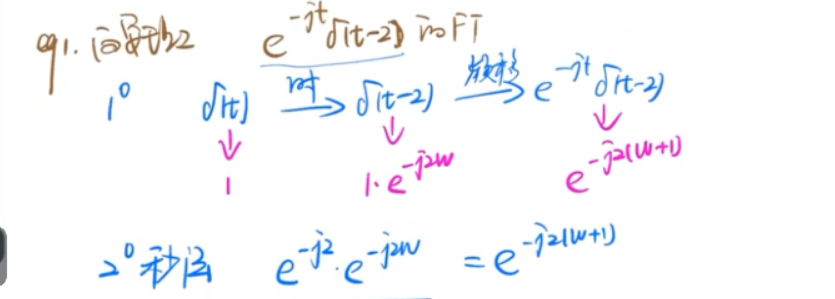 eg1. 问题2 e^{-jt}δ(t-2) 的FT
1° δ(t) 时→ δ(t-2) 频移→ e^{-jt} δ(t-2)
↓ ↓ ↓
1 1·e^{-j2w} e^{-j2(w+1)}
2° 秒杀 e^{-j2}·e^{-j2w} = e^{-j2(w+1)}